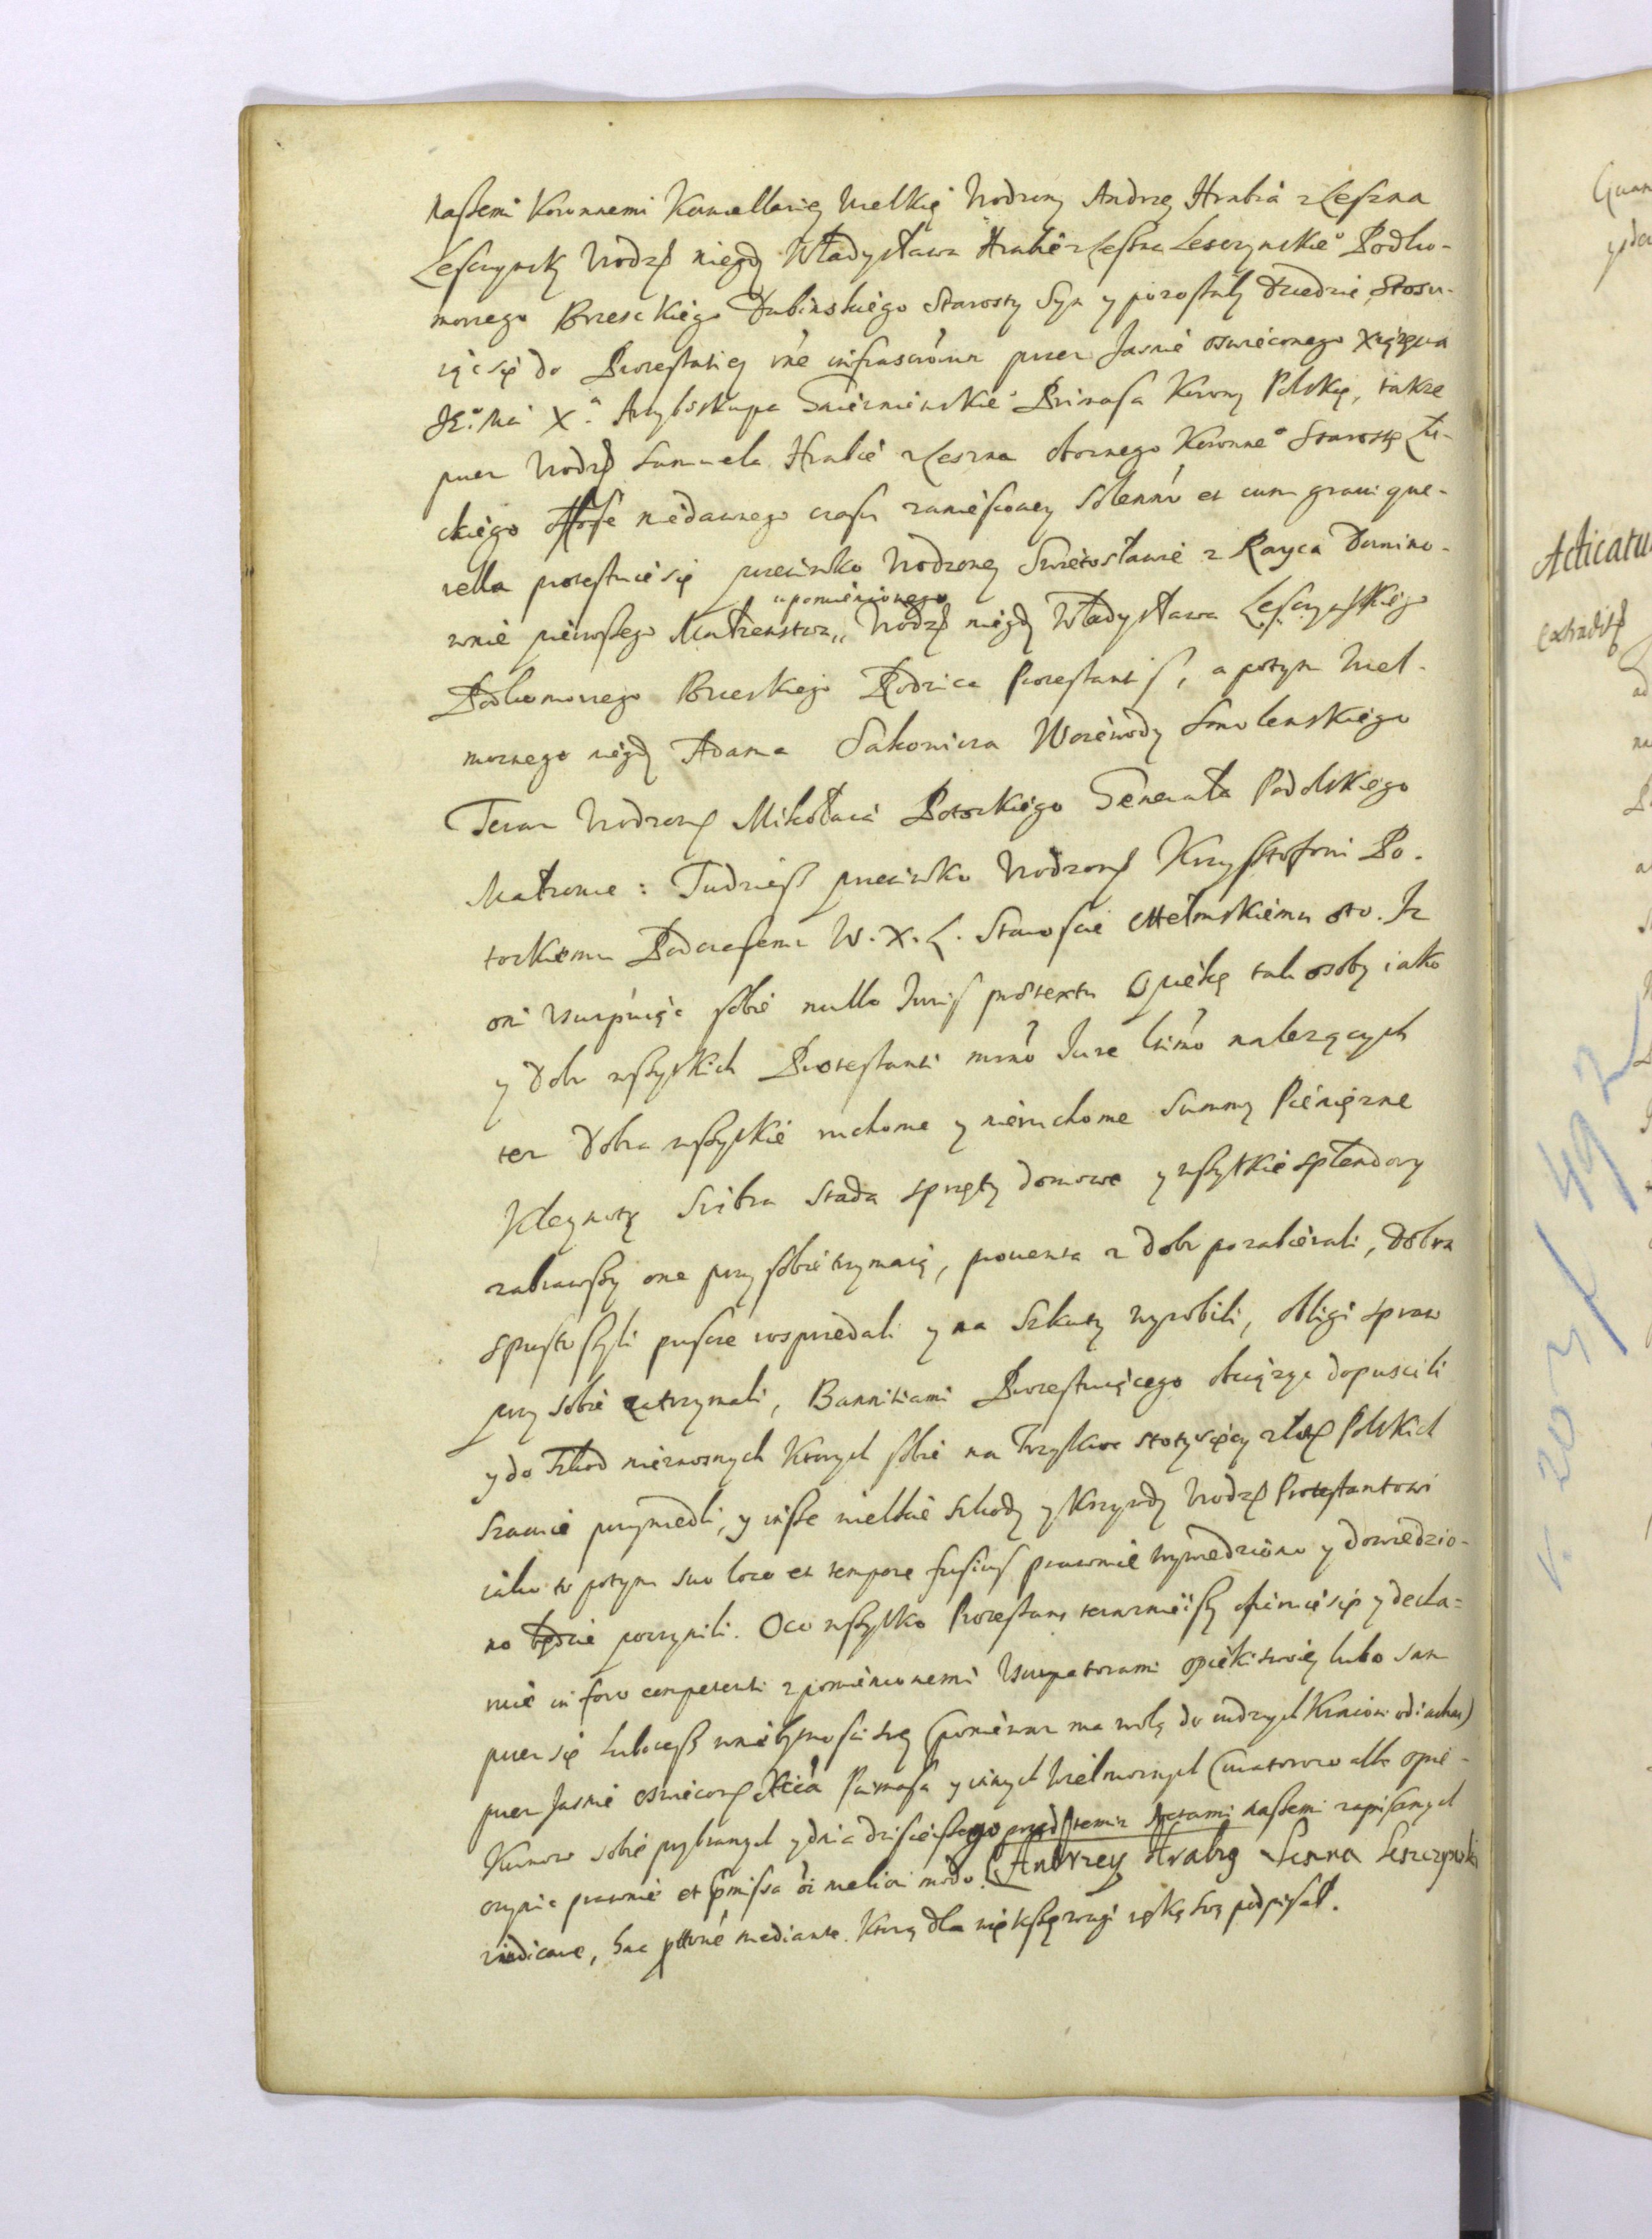 naszemi Koronnemi Kancellariey Wielkiey Urodzony Andrzey Hrabia z Leszna
Lesczynsky Urodzo niegdy Władysława Hrabie z Leszna Lesczynskieo Podko-
morzego Brzesckiego Dubinskiego Starosty Syn y pozostały Dziedzic, Stosu-
iąc się do Protestatiey rne infrascriptarum przez Jasnie oswieconego Xiążęcia
JEo Mci Xa Arcybiskupa Gnieznienskieo Primasa Korony Polskiey, także
przez Urodzo Samuela Hrabie z Leszna Obornego Koronneo Starostę Łu-
ckiego Ose niedawnego czasu zaniesioney Solenni et cum graui que-
rella protestuie się przeciwko Urodzoney Swiętosławie z Rayca Dunino-
wnie pierwszego Małzenstwa „ Urodzo niegdy Władysława Lesczynskiego
upomienionego
Podkomorzego Brzeskiego Rodzica Protestantis, a potym Wiel-
moznego niegdy Adama Sakowicza Woiewody Smolenskiego
Teraz Urodzonego Mikołaia Potockiego Generała Podolskiego
Małzonce: Tudziesz przeciwko Urodzonemu Krzysztofowi Po-
tockiemu Podczaszemu W. X. L. Staroscie Chełmskiemu oto. Iz
oni Usurpuiąc sobie nullo Iuris praetextu Opiekę tak osoby iako
y Dobr wszystkich Protestanti mno Iure ltimo nalezących
tez Dobra wszystkie ruchome y nieruchome Summy Pieniężne
Kleynoty Sribra Stada sprzęty domowe y wszytkie splendory
zabrawszy one przy sobie trzymaią, prouenta z Dobr pozabierali, Dobra
spustoszyli puscze rosprzedali y na Szkuty wyrobili, obligi spraw
przy sobie zatrzymali, Bannitiami Protestuiącego obciązyc dopuscili
y do Szkod nieznosnych Ktorych sobie na Trzykroc stotysięcy złotych Polskich
Szacuie przywiedli, y insze wielkie szkody y Krzywdy Urodzo Protestantowi
iako to potym suo loco et tempore fusius prawnie wywiedziono y dowiedzio-
no będzie poczynili. Oco wszytko Protestans teraznieiszy ofiaruie się y dekla-
ruie in foro competenti z pomienionemi Usurpatorami opieki swoiey lubo sam
przez się lubo tesz w niebytnosci swey (poniewaz ma wolą do cudzych Kraiow odiachac)
przez Jasnie oswieconego Xcia Primasa y innych Wielmoznych Curatorow albo opie-
Kunow sobie przybranych y dnia dzisieiszego przed temiz Actami naszemi zapisanych
czynic prawnie et praemissa oi meliori modo.
vindicare, hac ptne mediante. Ktorą dla większey wagi ręką swą podpisał.
Andrzey Hrabia z Leszna Leszczynski
Acticatu